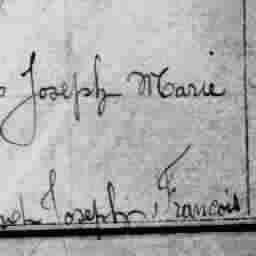 Joseph Marie
Joseph, Francois